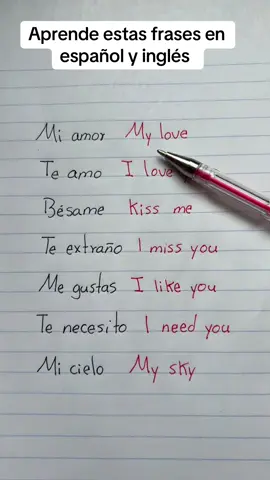 Aprende estas frases en
español y inglés
Mi amor My love
Te amo I love
Bésame Kiss me
Te extraño I miss you
Me gustas I like you
Te necesito I need you
Mi cielo My sky